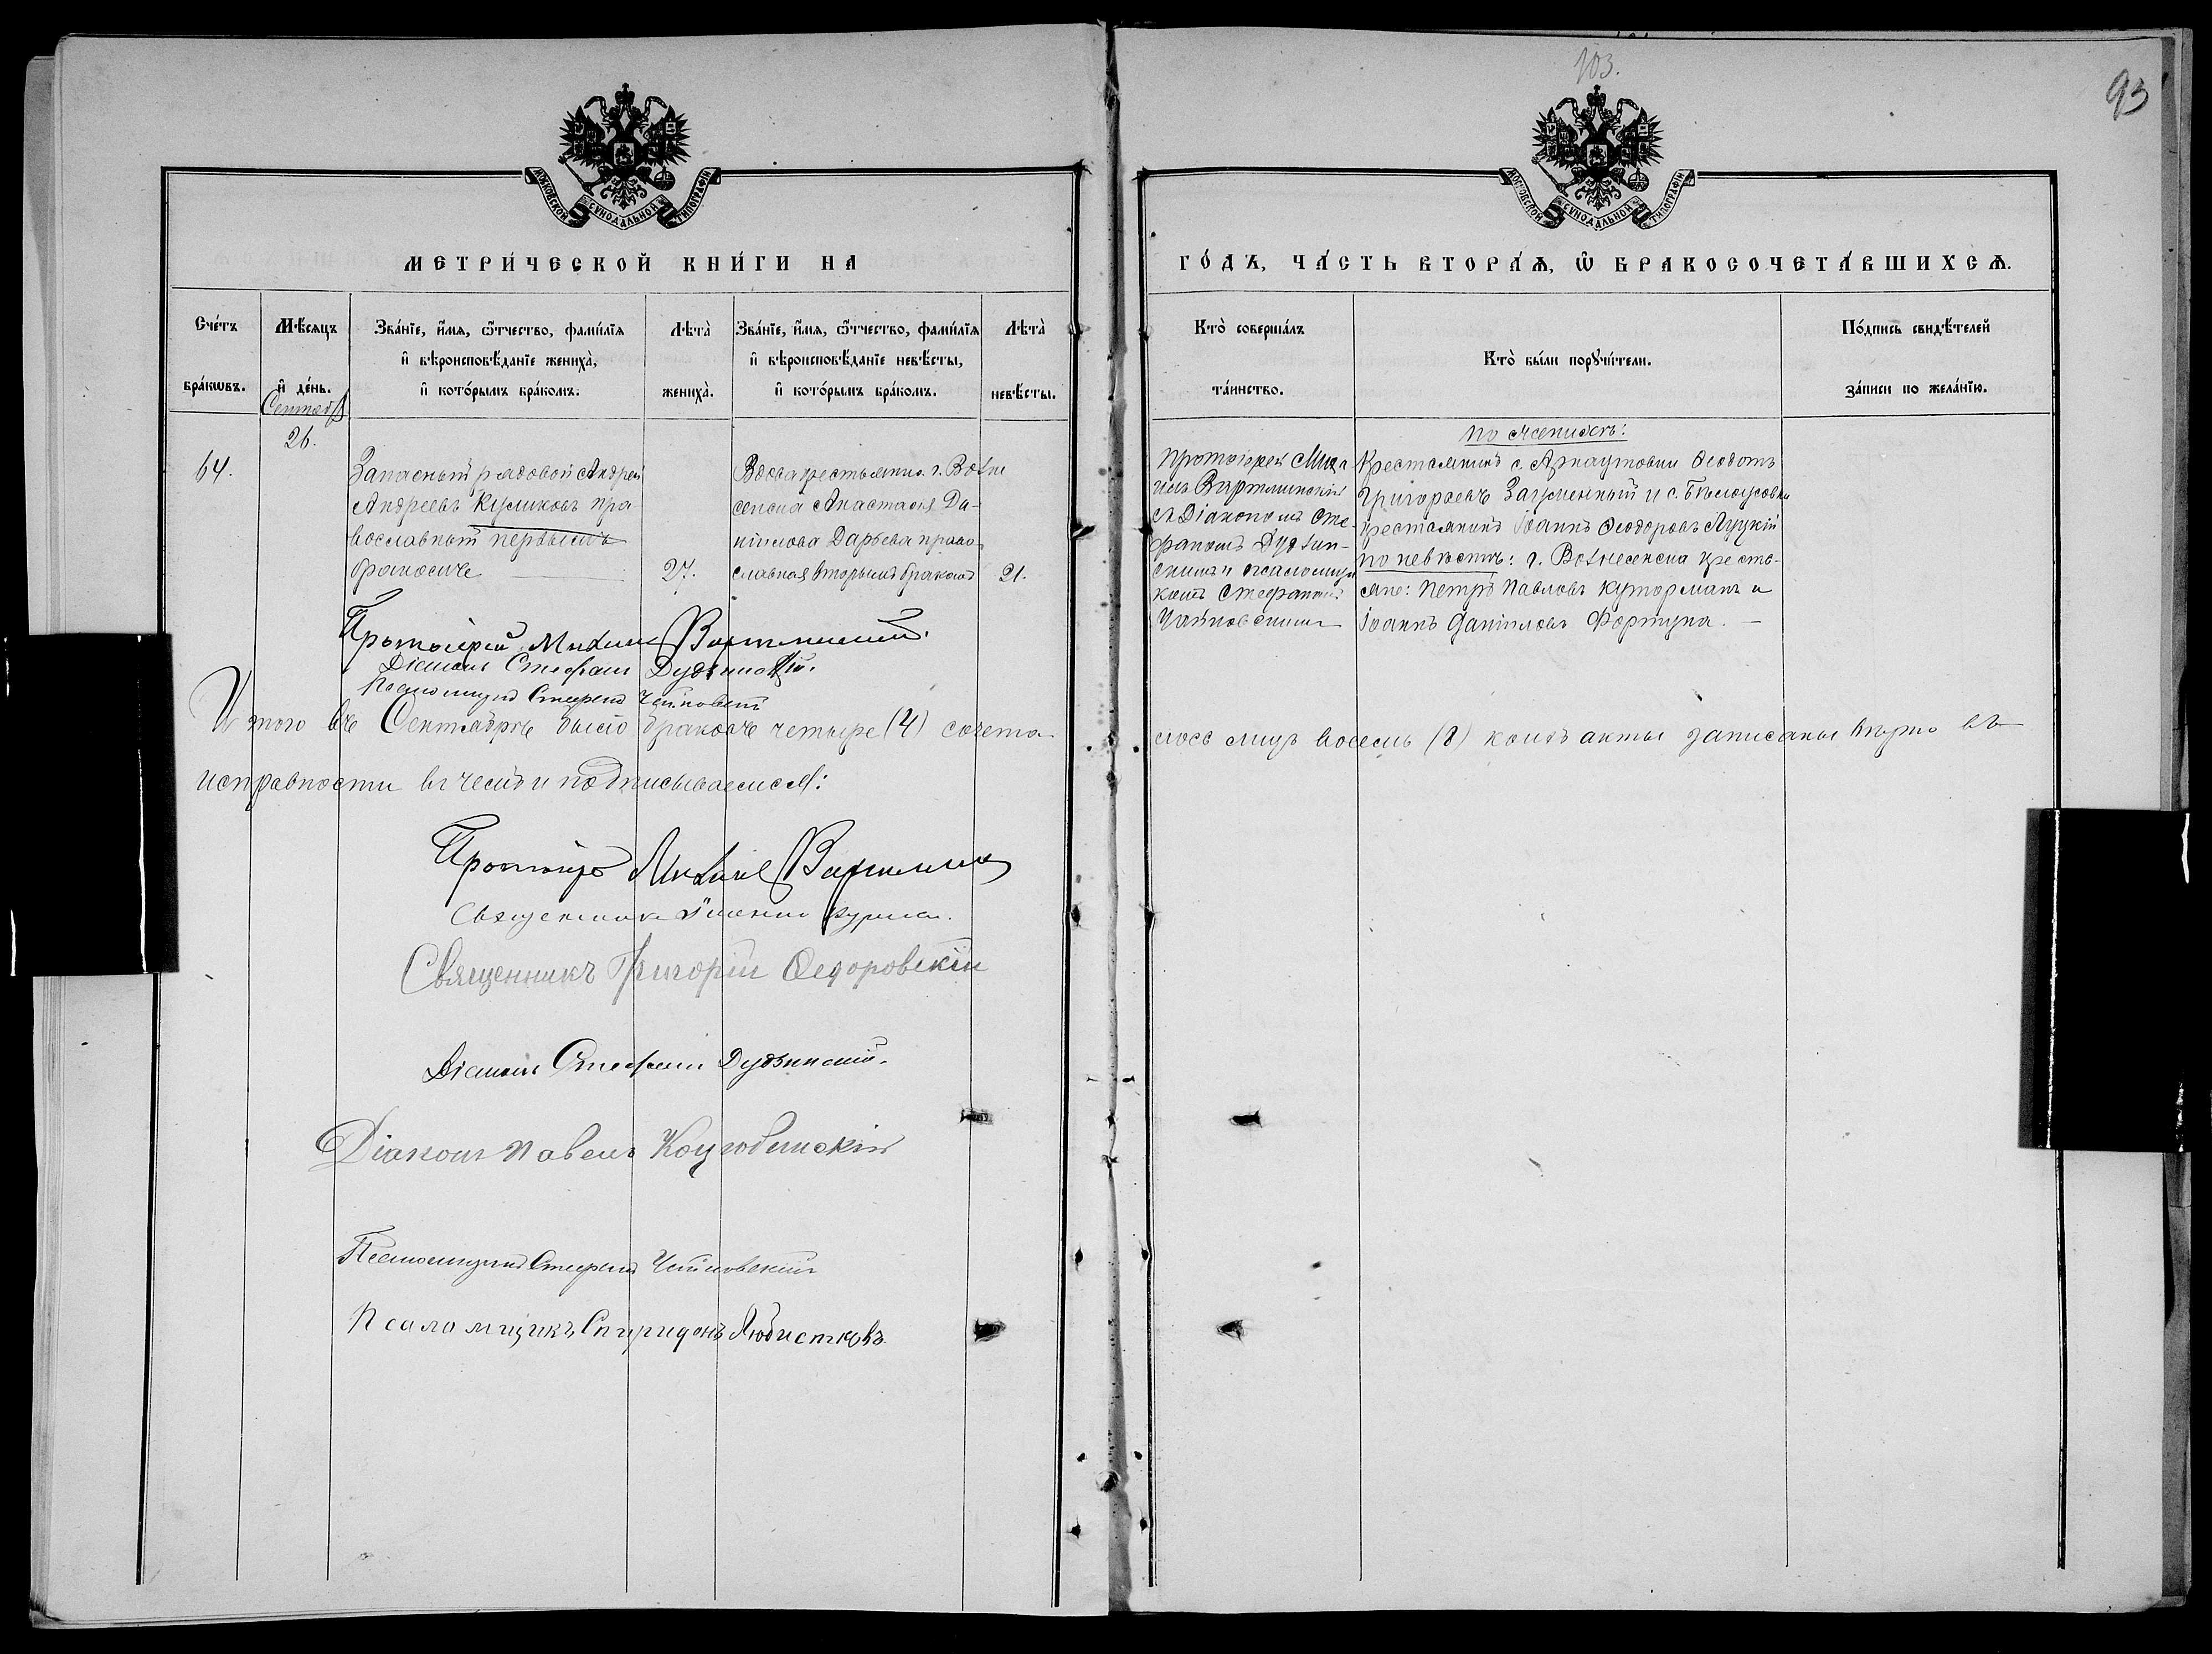 103.
93
МОСКОВСКОЙ СѴНОДАЛЬНОЙ ТИПОГРАФІИ
МОСКОВСКОЙ СѴНОДАЛЬНОЙ ТИПОГРАФІИ
МЕТРИ́ЧЕСКОЙ КНИ́ГИ НА
ГО́ДЪ, ЧА́СТЬ ВТОРА́Ѧ, Ѡ БРАКОСОЧЕТА́ВШИХСѦ.
Сче́тъ бра́кѡвъ.
Мѣ́сяцъ и҆ де́нь.
Зва́нїе, и҆́мѧ, ѻ҆́тчество, фами́лїѧ
и҆ вѣроисповѣ́данїе жениха̀,
и҆ кото́рымъ бра́комъ.
Лѣта̀ жениха̀.
Зва́нїе, и҆́мѧ, ѻ҆́тчество, фами́лїѧ
и҆ вѣроисповѣ́данїе невѣ́сты,
и҆ кото́рымъ бра́комъ.
Лѣта̀ невѣ́сты.
Кто̀ соверша́лъ та́инство.
Кто̀ бы́ли порꙋчи́тели.
По́дпись свидѣ́телей
за́писи по жела́нїю.
Сентяб
26.
64.
Запасный рядовой Андрей
Андреевъ Куликовъ пра
вославный первымъ
бракомъ
27.
Вдова крестьянина г. Возне
сенска Анастасія Да-
ніилова Дарьева право
славная вторымъ бракомъ
21.
Протоіерей Миха
илъ
съ Діакономъ Сте-
фаномъ Дубин-
скимъ и псаломщи
комъ Стефаномъ
Чайковскимъ
по женихѣ:
Крестьянинъ с. Арнаутовки Ѳеодотъ
Григорьевъ Загуменный и с. Бѣлоусовки
крестьянинъ Іоаннъ Ѳеодоровъ Луцкій
по невѣстѣ: г. Вознесенска кресть-
яне: Петръ Павловъ Куторманъ и
Іоаннъ Даніиловъ Фортуна.
Протоіерей Михаилъ
Діаконъ Стефанъ
Псаломщикъ Стефанъ Чайковскій
Итого въ Сентябрѣ было браковъ четыре (4) сочета-
лось лицъ восемь (8) коихъ акты записаны вѣрно въ
исправности въ чемъ и подписываемся:
Протоіерей Михаилъ
Священникъ
Священникъ Григорій Ѳедоровскій
Діаконъ Стефанъ
Діаконъ Павелъ Коцюбинскій
Псаломщикъ Стефанъ Чайковскій
Псаломщикъ Спиридонъ Любистковъ